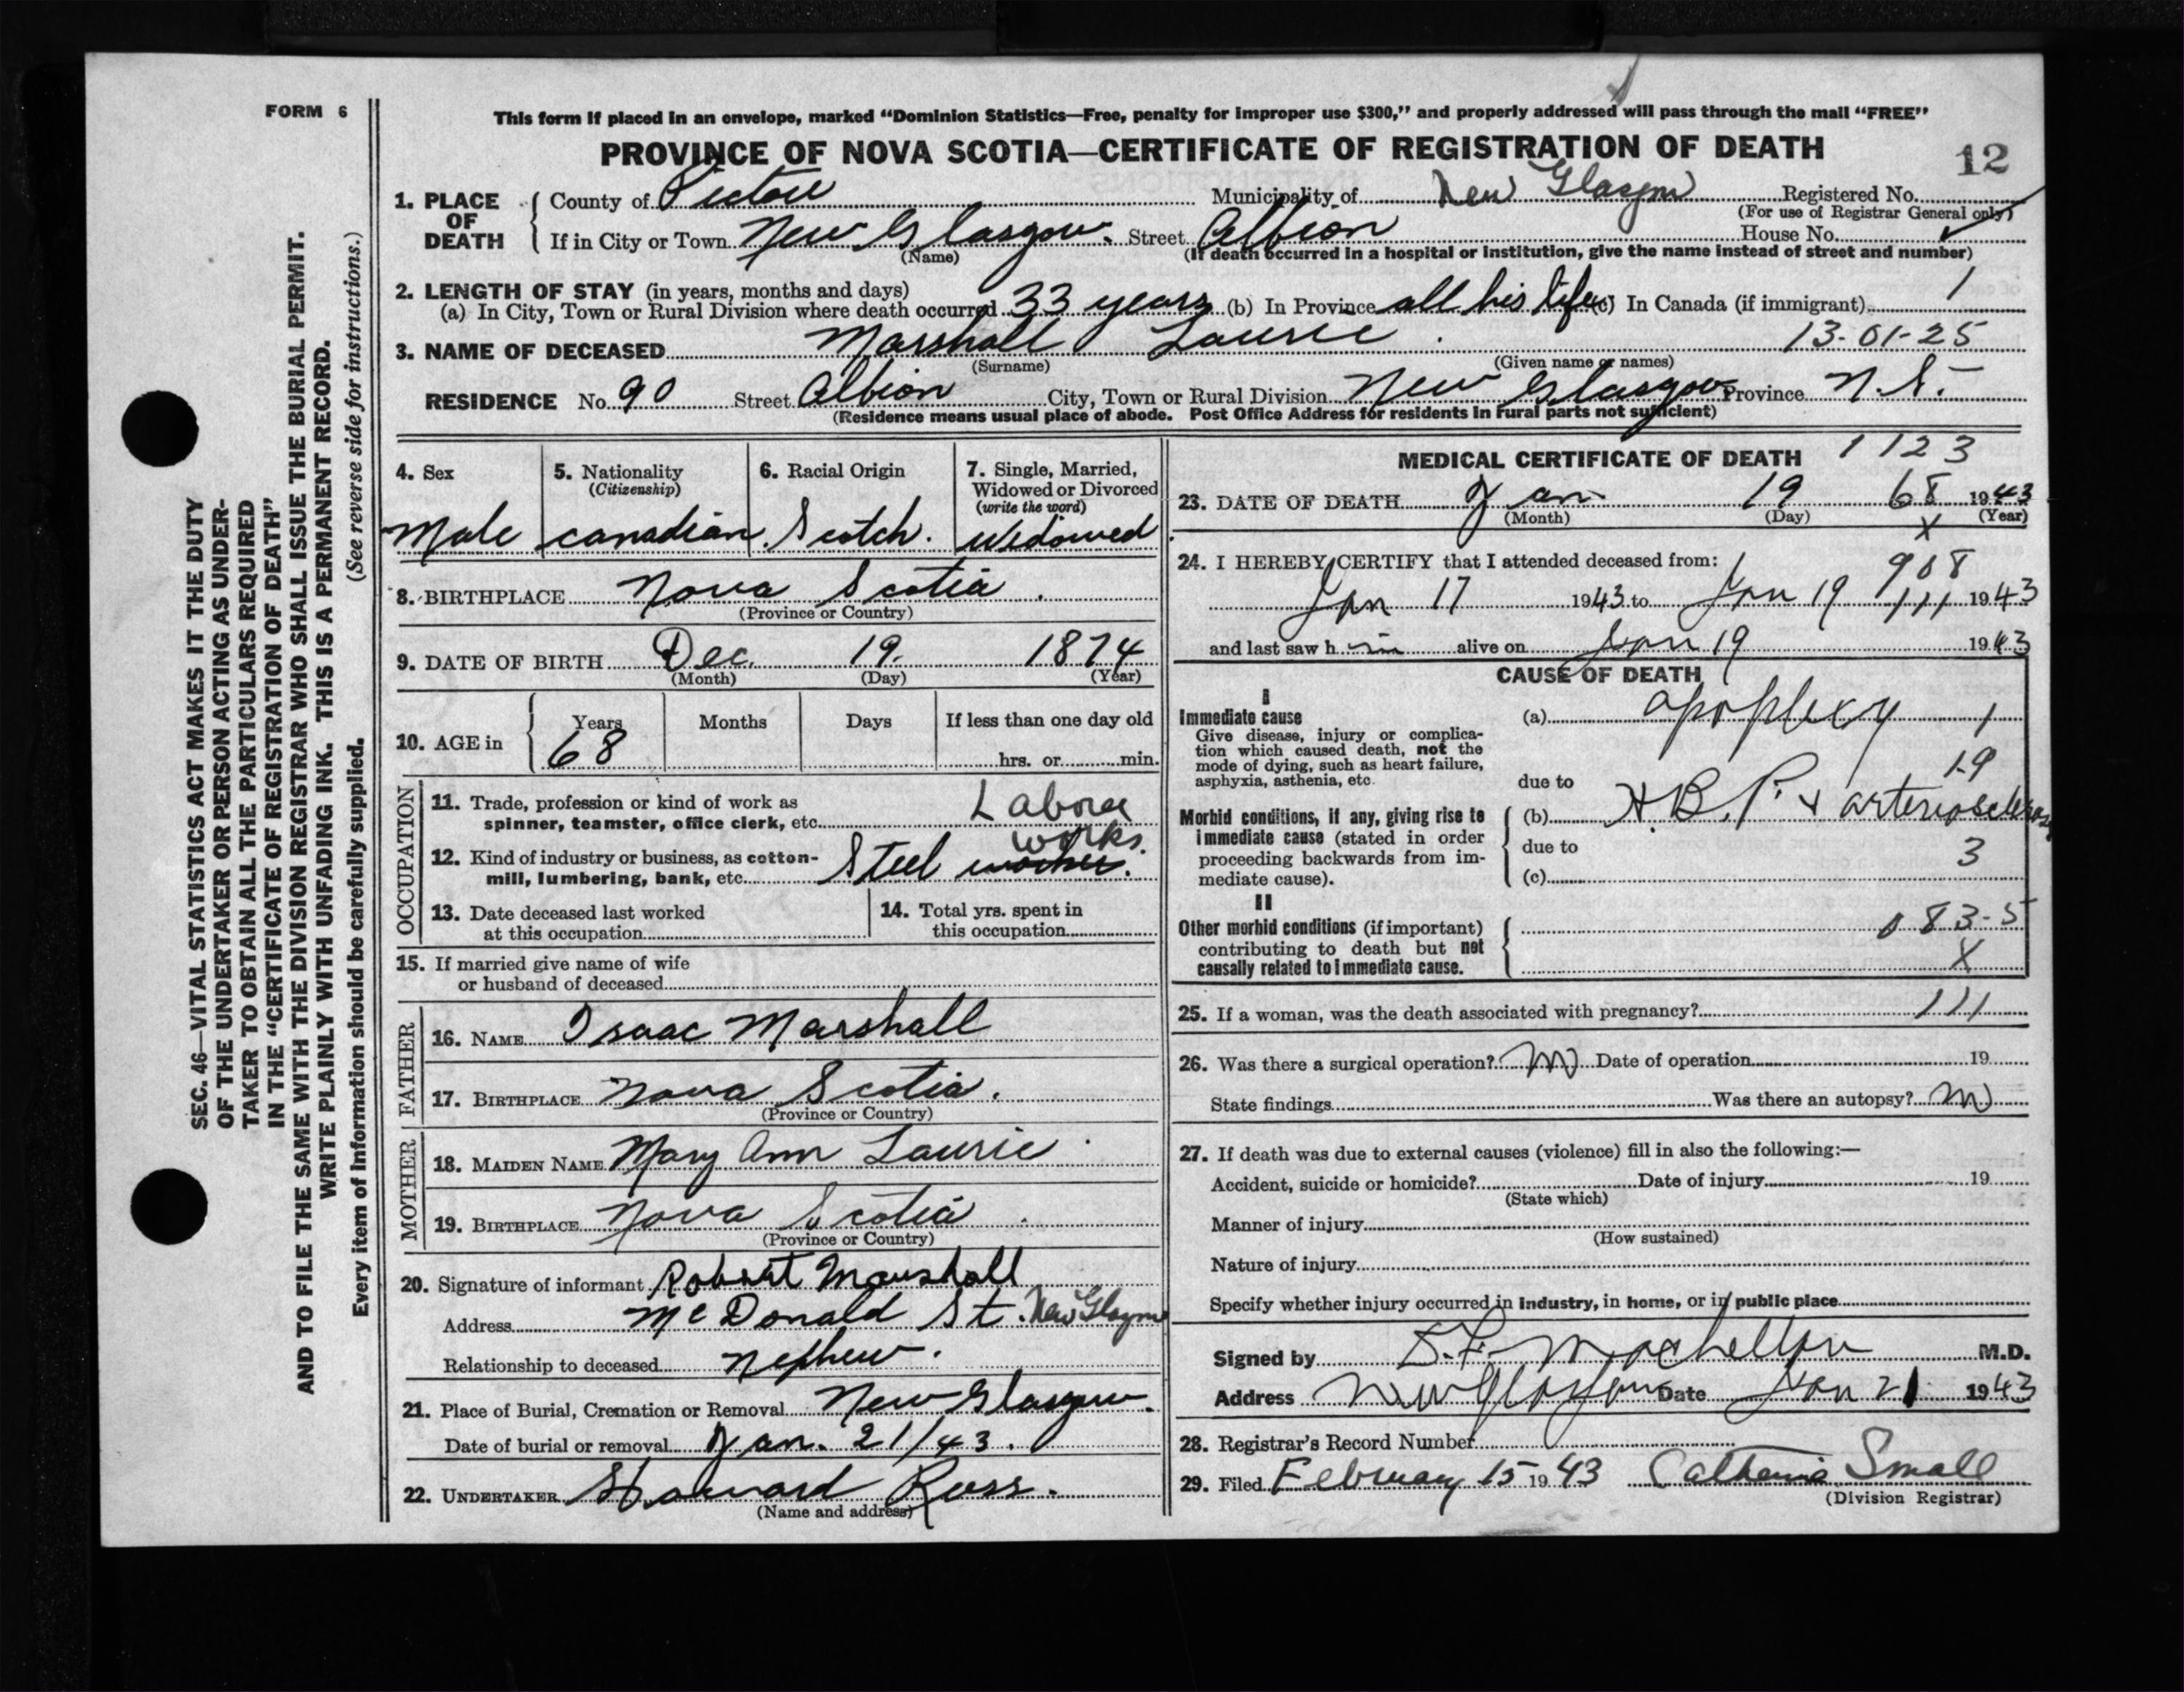 FORM 6
This form if placed in an envelope, marked “Dominion Statistics—Free, penalty for improper use $300,” and properly addressed will pass through the mail “FREE”
PROVINCE OF NOVA SCOTIA—CERTIFICATE OF REGISTRATION OF DEATH
12
1. PLACE OF DEATH
County of Pictou Municipality of New Glasgow Registered No.
(For use of Registrar General only)
If in City or Town New Glasgow. Street Albion House No.
(Name) (If death occurred in a hospital or institution, give the name instead of street and number)
2. LENGTH OF STAY (in years, months and days)
(a) In City, Town or Rural Division where death occurred 33 years (b) In Province all his life (c) In Canada (if immigrant) 1
3. NAME OF DECEASED Marshall Laurie 13-01-25
(Surname) (Given name or names)
RESIDENCE No. 90 Street Albion City, Town or Rural Division New Glasgow Province N.S.
(Residence means usual place of abode. Post Office Address for residents in rural parts not sufficient)
4. Sex Male
5. Nationality (Citizenship) canadian.
6. Racial Origin Scotch.
7. Single, Married, Widowed or Divorced (write the word) Widowed
8. BIRTHPLACE Nova Scotia.
(Province or Country)
9. DATE OF BIRTH Dec. 19. 1874
(Month) (Day) (Year)
10. AGE in Years 68 Months Days If less than one day old
hrs. or min.
OCCUPATION
11. Trade, profession or kind of work as
spinner, teamster, office clerk, etc. Laborer
12. Kind of industry or business, as cotton-
mill, lumbering, bank, etc. Steel works.
13. Date deceased last worked
at this occupation
14. Total yrs. spent in
this occupation
15. If married give name of wife
or husband of deceased
FATHER
16. NAME Isaac Marshall
17. BIRTHPLACE Nova Scotia.
(Province or Country)
MOTHER
18. MAIDEN NAME Mary Ann Laurie
19. BIRTHPLACE Nova Scotia
(Province or Country)
20. Signature of informant Robert Marshall
Address McDonald St. New Glasgow
Relationship to deceased nephew.
21. Place of Burial, Cremation or Removal New Glasgow.
Date of burial or removal Jan. 21/43.
22. UNDERTAKER Howard Ross.
(Name and address)
MEDICAL CERTIFICATE OF DEATH 1123
23. DATE OF DEATH Jan 19 68 1943
(Month) (Day) x (Year)
24. I HEREBY CERTIFY that I attended deceased from:
908
Jan 17 1943 to Jan 19 111 1943
and last saw h im alive on Jan 19 1943
CAUSE OF DEATH
I
Immediate cause
Give disease, injury or complica-
tion which caused death, not the
mode of dying, such as heart failure,
asphyxia, asthenia, etc.
(a) apoplexy 1
19
due to
Morbid conditions, if any, giving rise to
immediate cause (stated in order
proceeding backwards from im-
mediate cause).
(b) H.B.P. + arteriosclerosis
due to 3
(c)
II
Other morbid conditions (if important)
contributing to death but not
causally related to immediate cause.
083-5
X
25. If a woman, was the death associated with pregnancy? 111
26. Was there a surgical operation? no Date of operation 19
State findings Was there an autopsy? no
27. If death was due to external causes (violence) fill in also the following:—
Accident, suicide or homicide? Date of injury 19
(State which)
Manner of injury
(How sustained)
Nature of injury
Specify whether injury occurred in industry, in home, or in public place
Signed by M.D.
Address New Glasgow Date Jan 21 1943
28. Registrar's Record Number
29. Filed February 15 1943 Catherine Small
(Division Registrar)
SEC. 46—VITAL STATISTICS ACT MAKES IT THE DUTY
OF THE UNDERTAKER OR PERSON ACTING AS UNDER-
TAKER TO OBTAIN ALL THE PARTICULARS REQUIRED
IN THE “CERTIFICATE OF REGISTRATION OF DEATH”
AND TO FILE THE SAME WITH THE DIVISION REGISTRAR WHO SHALL ISSUE THE BURIAL PERMIT.
WRITE PLAINLY WITH UNFADING INK. THIS IS A PERMANENT RECORD.
Every item of information should be carefully supplied. (See reverse side for instructions.)